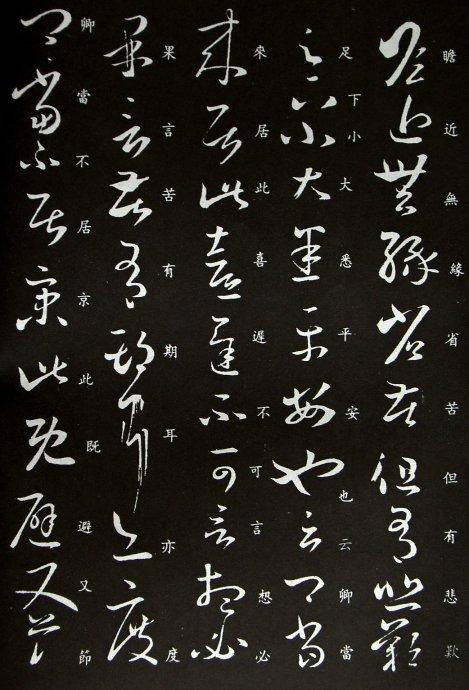 瞻近無緣省苦但有悲歎
足下小大悉平安也云卿當
來居此喜遲不可言想必
果言苦有期耳亦度
卿當不居京此既避又節